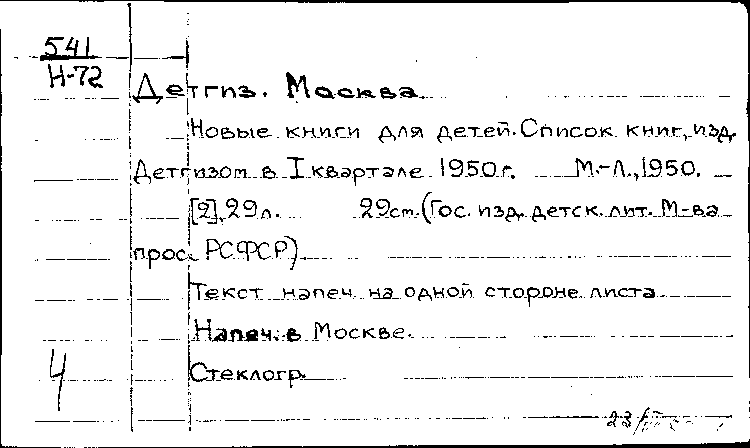 541
Н-72
Детгиз. Москва.
Новые книги для детей. Список книг, изд.
Детгизом в I квартале 1950 г. М.-Л., 1950.
[2], 29 л. 29 см. (Гос. изд. детск. лит. М-ва
прос. РСФСР)
Текст напеч. на одной стороне листа
Напеч. в Москве.
Стеклогр.
4